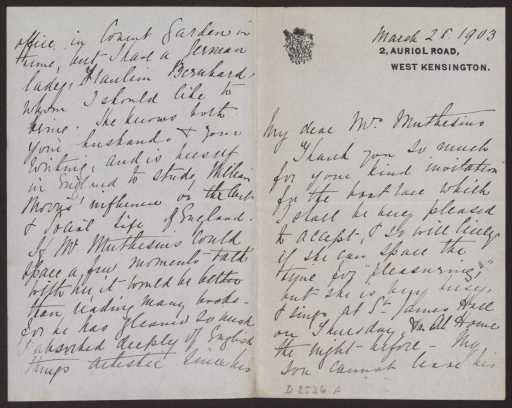 March 28 1903
2, AURIOL ROAD,
WEST KENSINGTON.
My dear Mrs Muthesius
Thank you so much
for your kind invitation
for the boat race which
I shall be very pleased
to accept, & so will
if she can spare the
time for "pleasuring,"
but she is very busy,
& sings at St James Hall
on Thursday, & At Home
the night before - My
son cannot leave his
office in Covent Garden in
time, but I have a German
lady, Fraulein Bernhard
whom I should like to
bring. She knows both
your husband & your
writing, and is herself
in England to study William
Morris' influence on the Art
& Social life of England.
If Mr Muthesius could
space a few moments talk
with her, it would be better
than reading many books -
for he has gleaned so much
& absorbed deeply of English
things artistic since his
D 2526 A